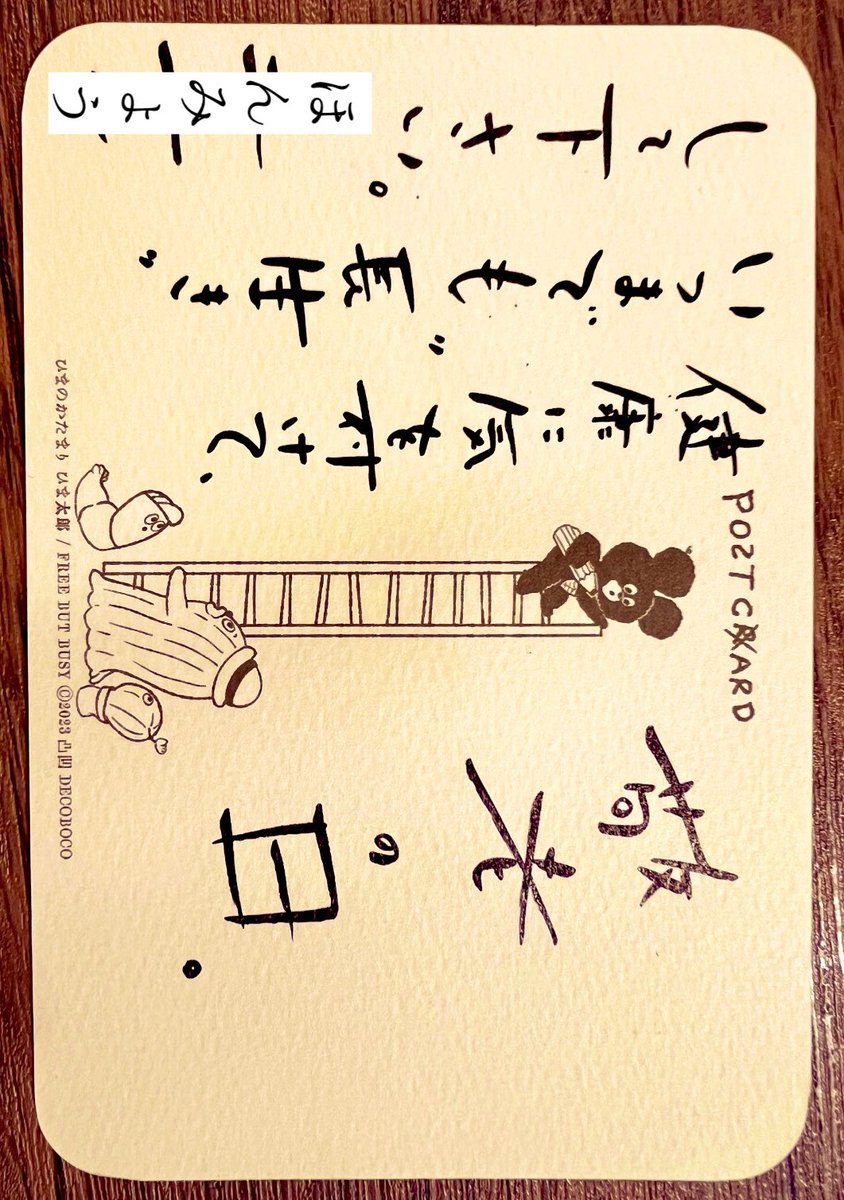 敬老の日。
POSTCARD
健康に気を付けて、
いつまでも"長生き"
して下さい。
ほんみょう
ひまのかたまり ひま太郎 / FREE BUT BUSY ©2023 凸凹 DECOBOCO